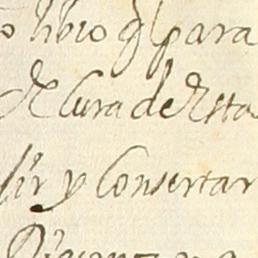 o libro q̃ para
de Cura de Esta
sir y Consertar